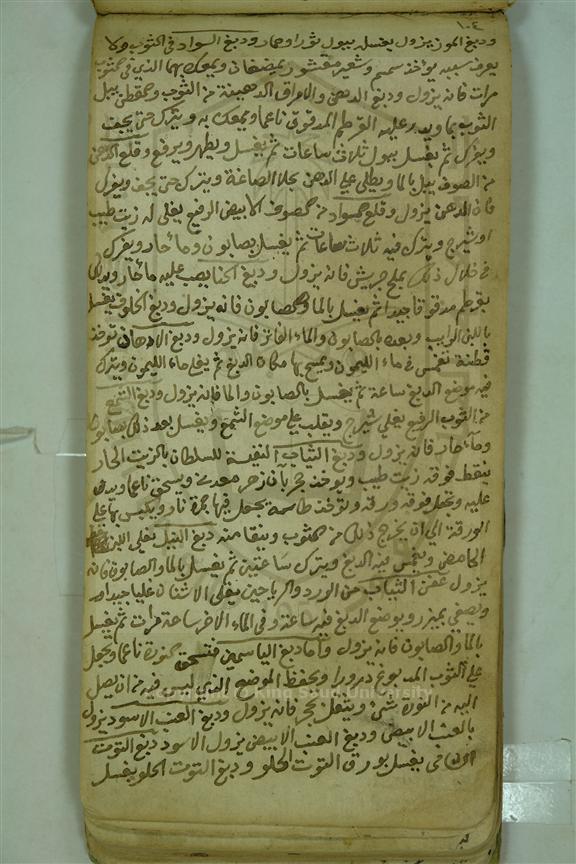 ١٠٤
ودبغ الموز يزول يغسل ببول ثور او حمار ودبغ السواد في الثوب ولا
يعرف سببه يوخذ سمسم وشعير مقشور يمضغان ويمعك بهما الذي في الثوب
مرات فانه يزول ودبغ الدهن والامراق الدهينة من الثوب يبل
الثوب بما ويدر عليه القرطم المدقوق ناعما ويمعك به ويترك حتى يجف
ويفرك ثم يغسل ببول ثلاث ساعات ثم يغسل ويطهر ويرفع وقلع الدهن
من الصوف يبل بالما ويطلى على الدهن بجلا الصاغة ويترك حتى يجف ويفرك
فان الدهن يزول وقلع السواد من الصوف الابيض الرفيع يغلى له زيت طيب
او شيرج ويترك فيه ثلاث ساعات ثم يغسل بصابون وما حار ويفرك
في خلال ذلك بملح جريش فانه يزول ودبغ الحنا يصب عليه ما حار ويدلك
بقرطم مدقوقا جيدا ثم يغسل بالما والصابون فانه يزول ودبغ الخلوق يغسل
باللبن الرايب وبعده بالصابون والماء الفاتر فانه يزول ودبغ الادهان توخذ
قطنة تغمس في ماء الليمون ويمسح بها مكان الدبغ ثم يغلى ماء الليمون ويترك
فيه موضع الدبغ ساعة ثم يغسل بالصابون والما فانه يزول ودبغ الشمع
من الثوب الرفيع يغلى شيرج ويقلب على موضع الشمع ويغسل بعد ذلك بصابون
وماء حار فانه يزول ودبغ الثياب النفيسة للسلطان بالزيت الحار
ينقط فوقه زيت طيب ويوخذ حجر معدني ويسحق ناعما ويدر
عليه وتجعل فوقه ورقة وتوخذ طاسة يجعل فيها جمرة نار ويكبس بها على
الورقة الى ان يخرج ذلك من الثوب وينقا منه دبغ النيل يغلى اللبن
الحامض ويغمس فيه الدبغ ويترك ساعتين ثم يغسل بالما والصابون فانه
يزول عفن الثياب من الورد والرياحين يغلى الاشنان غليا جيدا
ويصفى بميزر ويوضع الدبغ فيه ساعة وفي الماء الاخر ساعة مرات ثم يغسل
بالما والصابون فانه يزول واما دبغ الياسمين فتسحق النورة ناعما ويجعل
على الثوب المدبوغ درورا ويحفظ الموضع الذي ليس فيه من ان يصل
اليه من النورة شي ويثقل بحجر فانه يزول ودبغ العنب الاسود يزول
بالعنب الابيض ودبغ العنب الابيض يزول الاسود دبغ التوت
يغسل بورق التوت الحلو ودبغ التوت الحلو يغسل
King Saud University